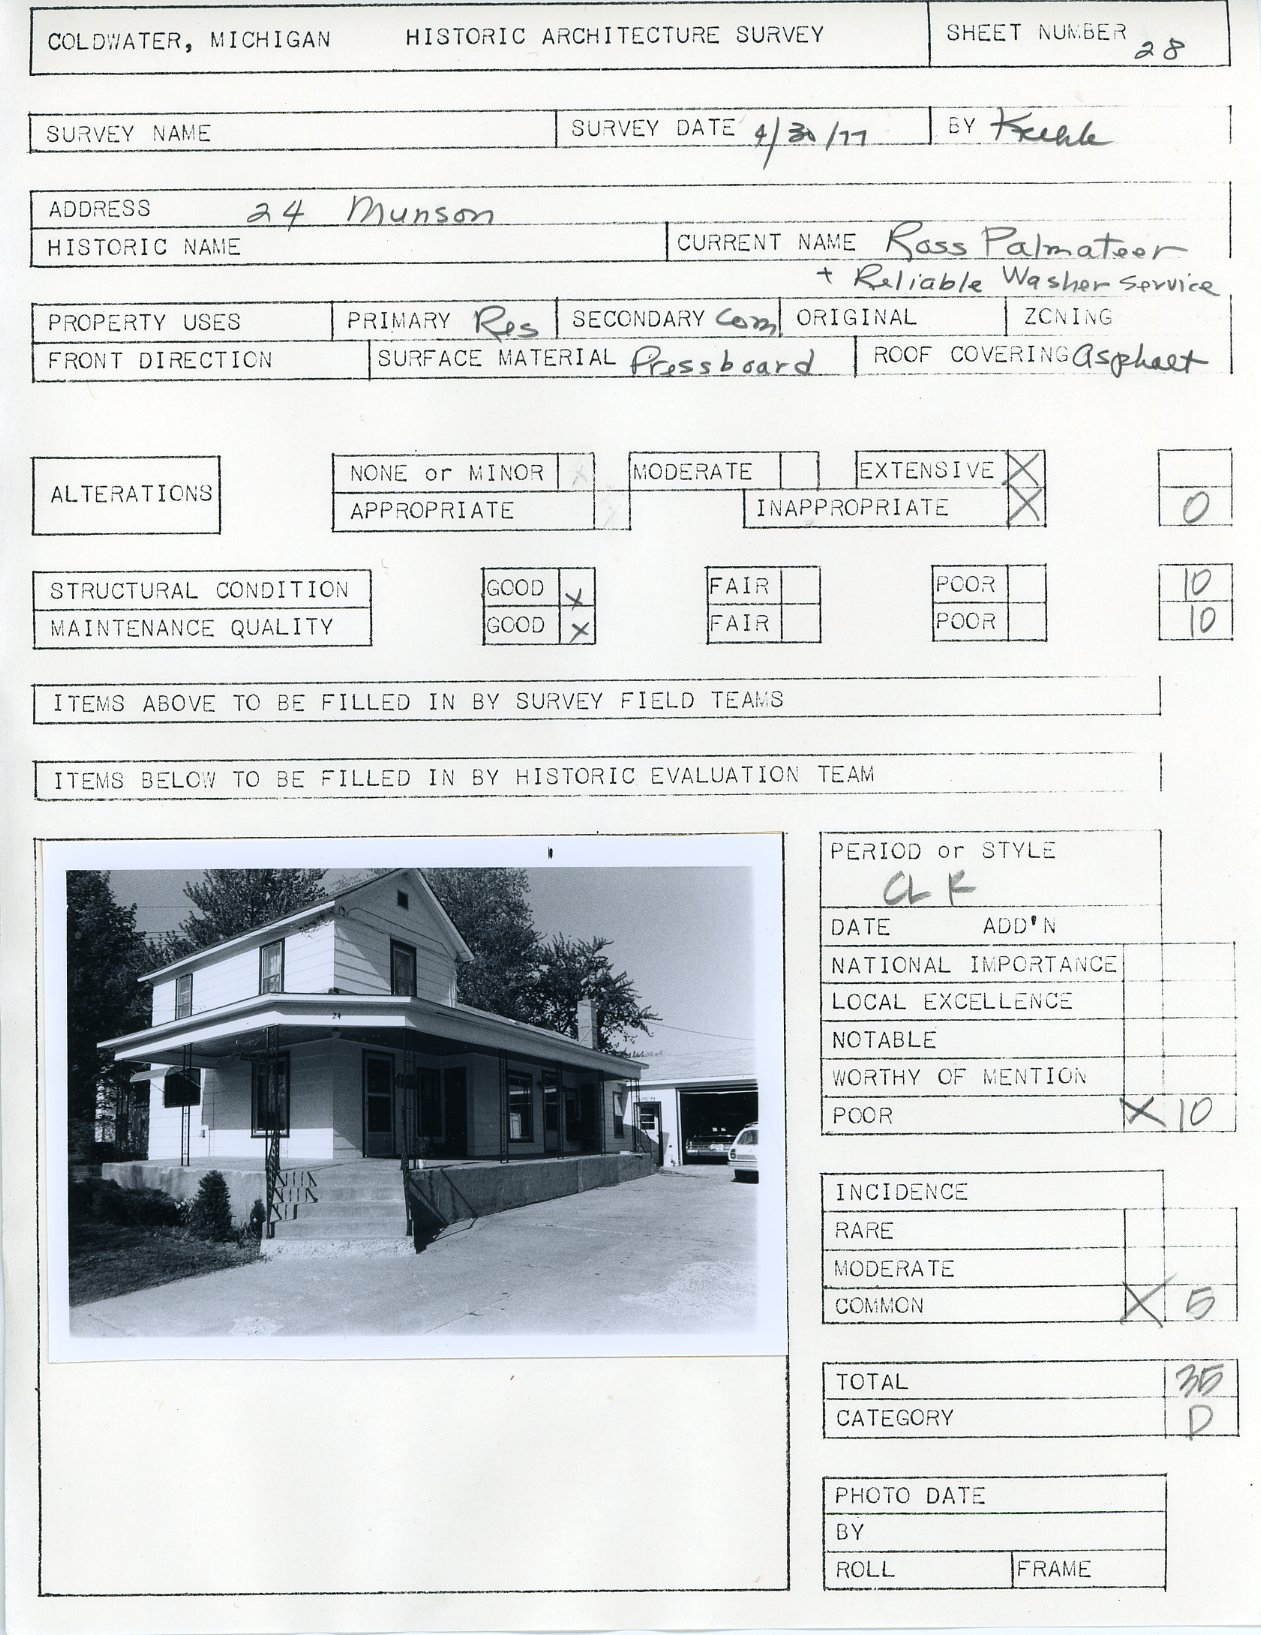 COLDWATER, MICHIGAN HISTORIC ARCHITECTURE SURVEY SHEET NUMBER 28
SURVEY NAME SURVEY DATE 4/30/77 BY
ADDRESS 24 Munson
HISTORIC NAME CURRENT NAME Ross Palmateer
+ Reliable Washer Service
PROPERTY USES PRIMARY Res SECONDARY Com ORIGINAL ZONING
FRONT DIRECTION SURFACE MATERIAL Pressboard ROOF COVERING Asphalt
NONE or MINOR MODERATE EXTENSIVE X
ALTERATIONS
APPROPRIATE INAPPROPRIATE X 0
STRUCTURAL CONDITION GOOD x FAIR POOR 10
MAINTENANCE QUALITY GOOD x FAIR POOR 10
ITEMS ABOVE TO BE FILLED IN BY SURVEY FIELD TEAMS
ITEMS BELOW TO BE FILLED IN BY HISTORIC EVALUATION TEAM
24
PERIOD or STYLE
DATE ADD'N
NATIONAL IMPORTANCE
LOCAL EXCELLENCE
NOTABLE
WORTHY OF MENTION
POOR X 10
INCIDENCE
RARE
MODERATE
COMMON X 5
TOTAL 35
CATEGORY D
PHOTO DATE
BY
ROLL FRAME